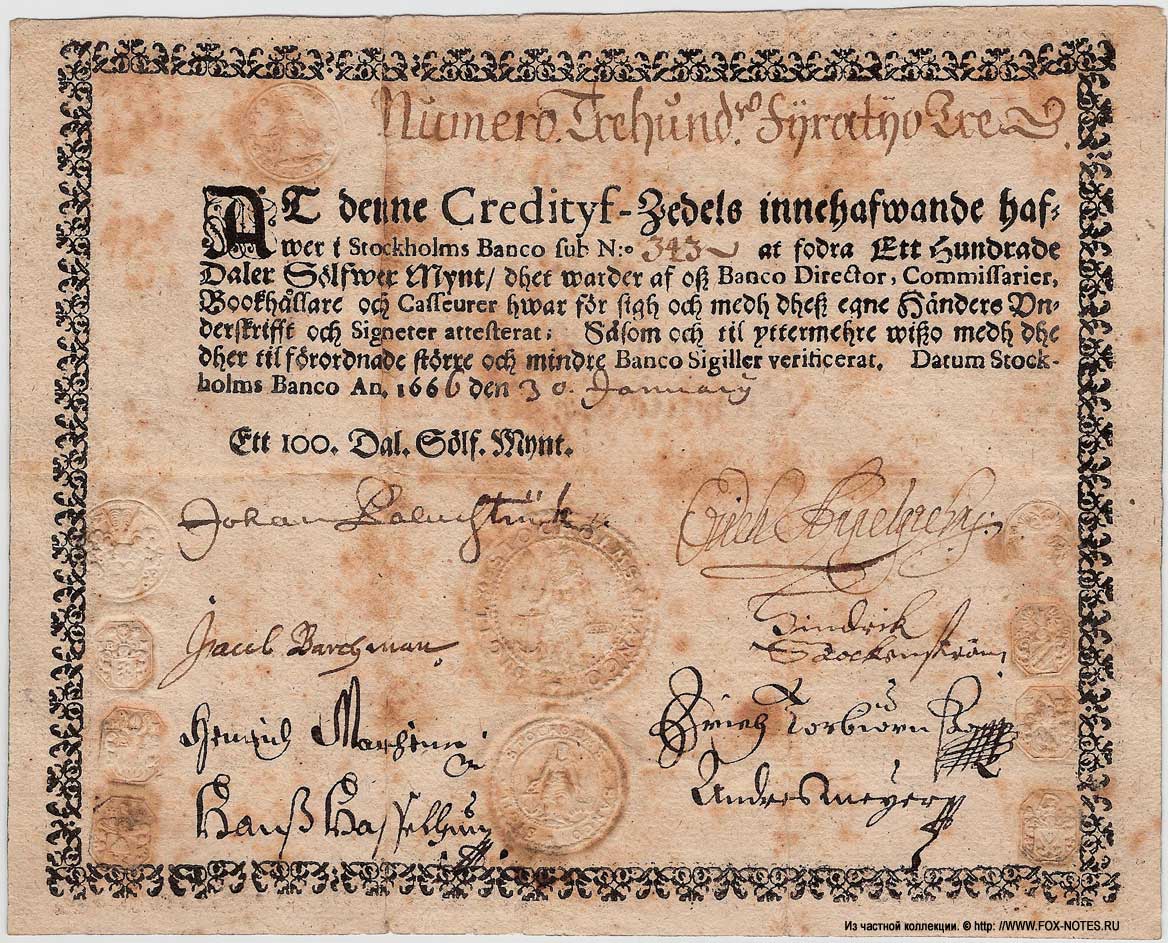 Numero. Trehund.ᵈᵒ Fÿratÿo Tre
AT denne Credityf-Zedels innehafwande haf-
wer i Stockholms Banco sub N:o 343 at fodra Ett Hundrade
Daler Sölfwer Mynt/ dhet warder af oß Banco Director, Commissarier,
Bookhållare och Casseurer hwar för sigh och medh dheß egne Händers Vn-
derskrifft och Signeter attesterat; Såsom och til yttermehre wißo medh dhe
dher til förordnade större och mindre Banco Sigiller verificerat. Datum Stock-
holms Banco An. 1666 den 30. January
Ett 100. Dal. Sölf. Mynt.
Johan
Jacob Barchman
Hindrik
Hans
Andres Meyer
Из частной коллекции. © http: //WWW.FOX-NOTES.RU